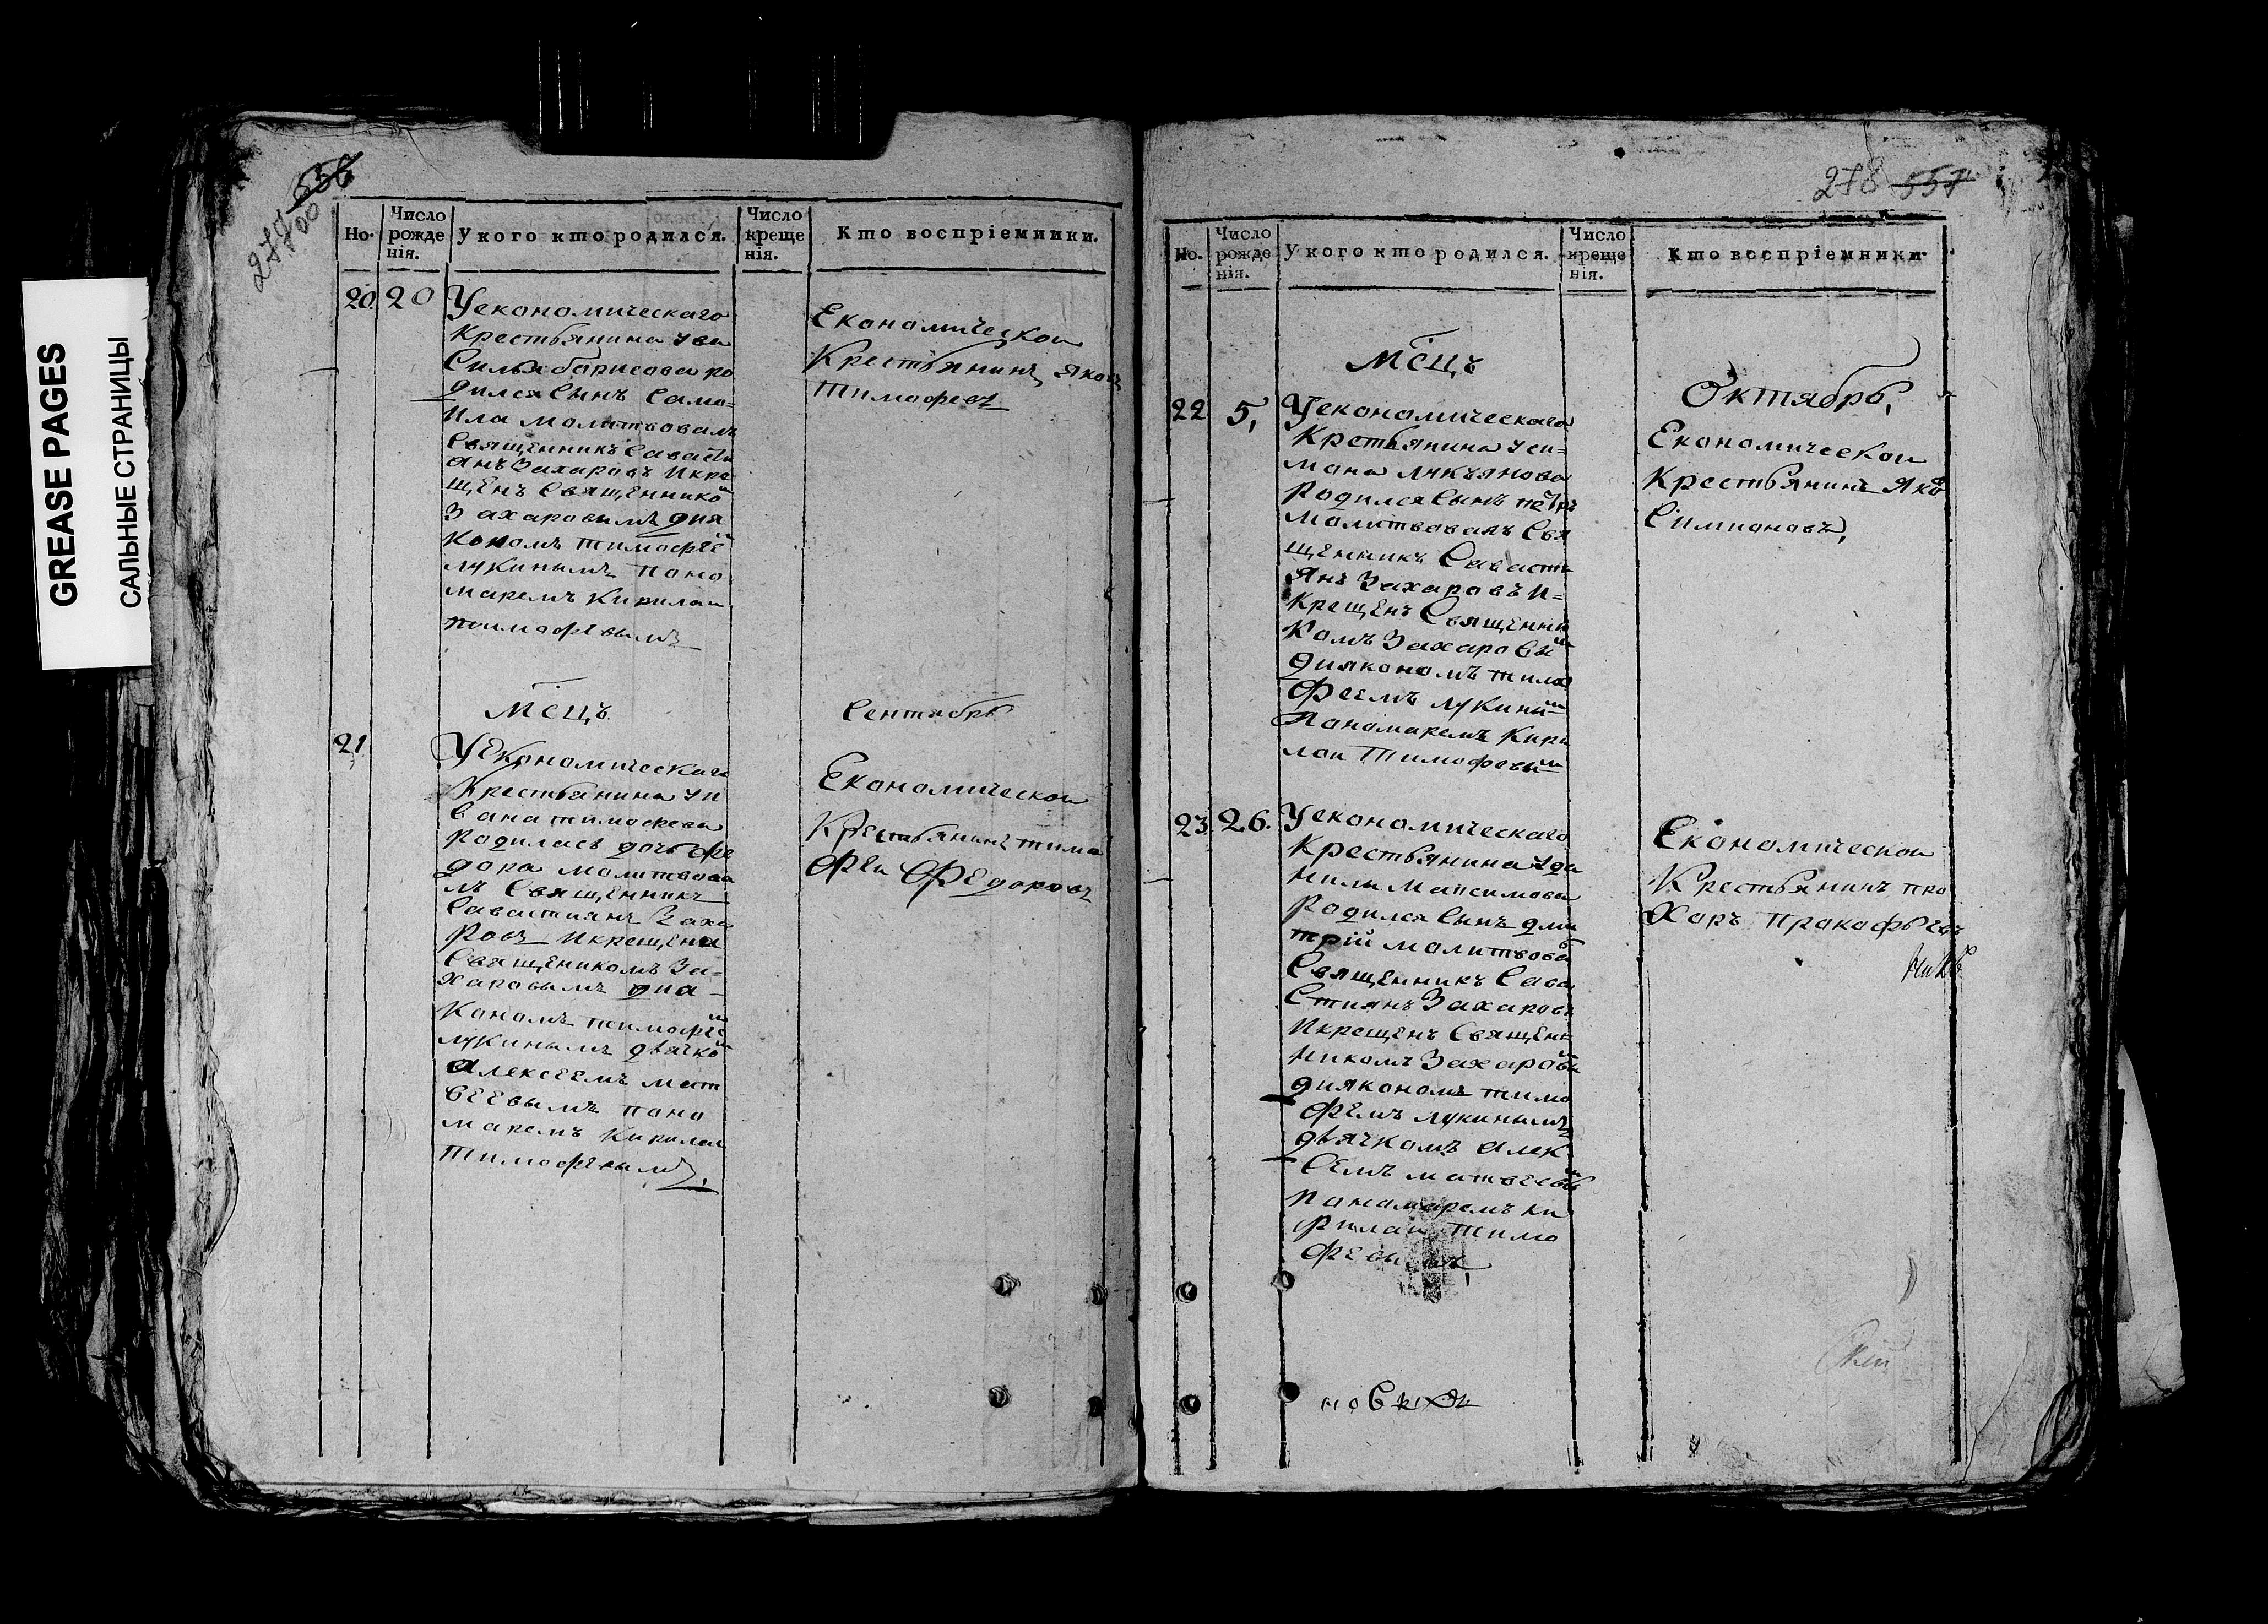 GREASE PAGES
САЛЬНЫЕ СТРАНИЦЫ
556
277 об
Но.
Число рожде нія.
У кого кто родился.
Число креще нія.
Кто воспріемники.
20
20
Уекономическаго
крестьянина ува
Силья барисова ро
дился Сынъ Само=
ила молитвовалъ
Священникъ Савасти
анъ Захаровъ Икре
щенъ Священнико
Захаровымъ дия
кономъ тимофее
лукинымъ поно
маремъ Кирилаи
тимофевымъ
Економическои
Крестьянинъ яковъ
тимофеевъ
Мсцъ
Сентябрь
21
Уекономическаго
Крестьянина уи
вана тимофеева
родилась дочь Фе
дора молитвова
лъ Священникъ
Савастиянъ Заха
ровъ Икрещена
Священикомъ За=
харовымъ диа-
кономъ тимофее
лукинымъ дьячко
Алексеемъ мат
веевымъ поно
маремъ Кирилаи
Тимофевымъ,
Економическои
Крестьянинъ тимо
Феи Федоровъ
278 557
Но.
Число рожде нія.
У кого кто родился.
Число креще нія.
Кто воспріемники.
Мсцъ
Октябрь,
22
5,
Уекономическаго
Крестьянина уси=
мана лукъянова
Родился Сынъ петръ
молитвовалъ Свя
щенникъ Саваcти
янъ Захаровъ И=
Крещенъ Священни
комъ Захаровы
дияконамъ тимо
Феемъ лукины
Паномаремъ Кири
лаи Тимофевы
Економическои
Крестьянинъ Яко
Симионовъ,
23
26.
Уекономическаго
Крестьянина уда
нилы Максимова
Родился Сынъ дми
трій молитвова
Священникъ Сава
Стиянъ Захаровъ
Икрещенъ Священ
никомъ Захаровы
дияконамъ тимо
Фемъ лукинымъ
дьячкомъ Алек
Семъ матвеевы
паномаремъ Ки
рилаи Тимо
Февымъ,
Економическои
Крестьянинъ про
Харъ прокафьевъ